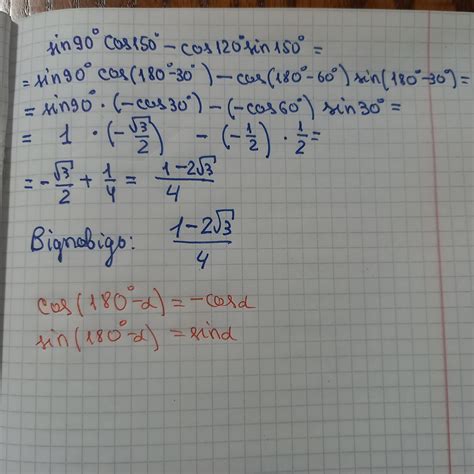 sin90° cos150° − cos120° sin150° =
= sin90° cos(180°−30°) − cos(180°−60°) sin(180°−30°) =
= sin90° · (−cos30°) − (−cos60°) sin30° =
= 1 · (−√3/2) − (−1/2) · 1/2 =
= −√3/2 + 1/4 = (1−2√3)/4
Відповідь: (1−2√3)/4
cos(180°−α) = −cosα
sin(180°−α) = sinα